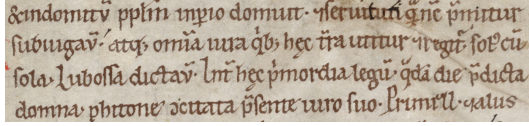 &indomitū pplm̄ īnperio domuit. ⁊seruituti q̄ nc̄ p̄mitur
subiugaū. atq; om̄ia iura q̇b; hęc t̄ra utitur ⁊regit᷑ solꝰ cū
sola. Lubossa dictaū. Int̄ hęc p̄mordia legū q̄dā die p̄dicta
domna phitone ↄcitata p̄sente uiro suo Primizl ⁊alus